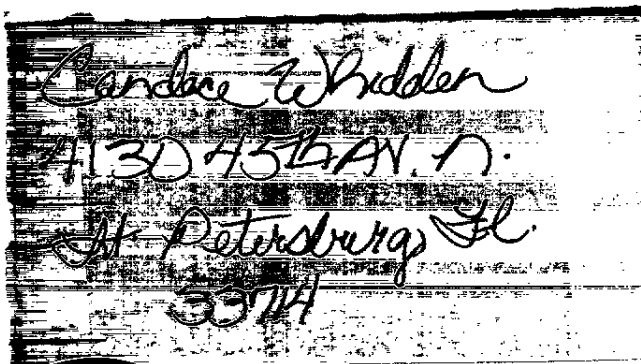 Candace Whidden
4130 45th AV. N.
St. Petersburg, Fl.
33714